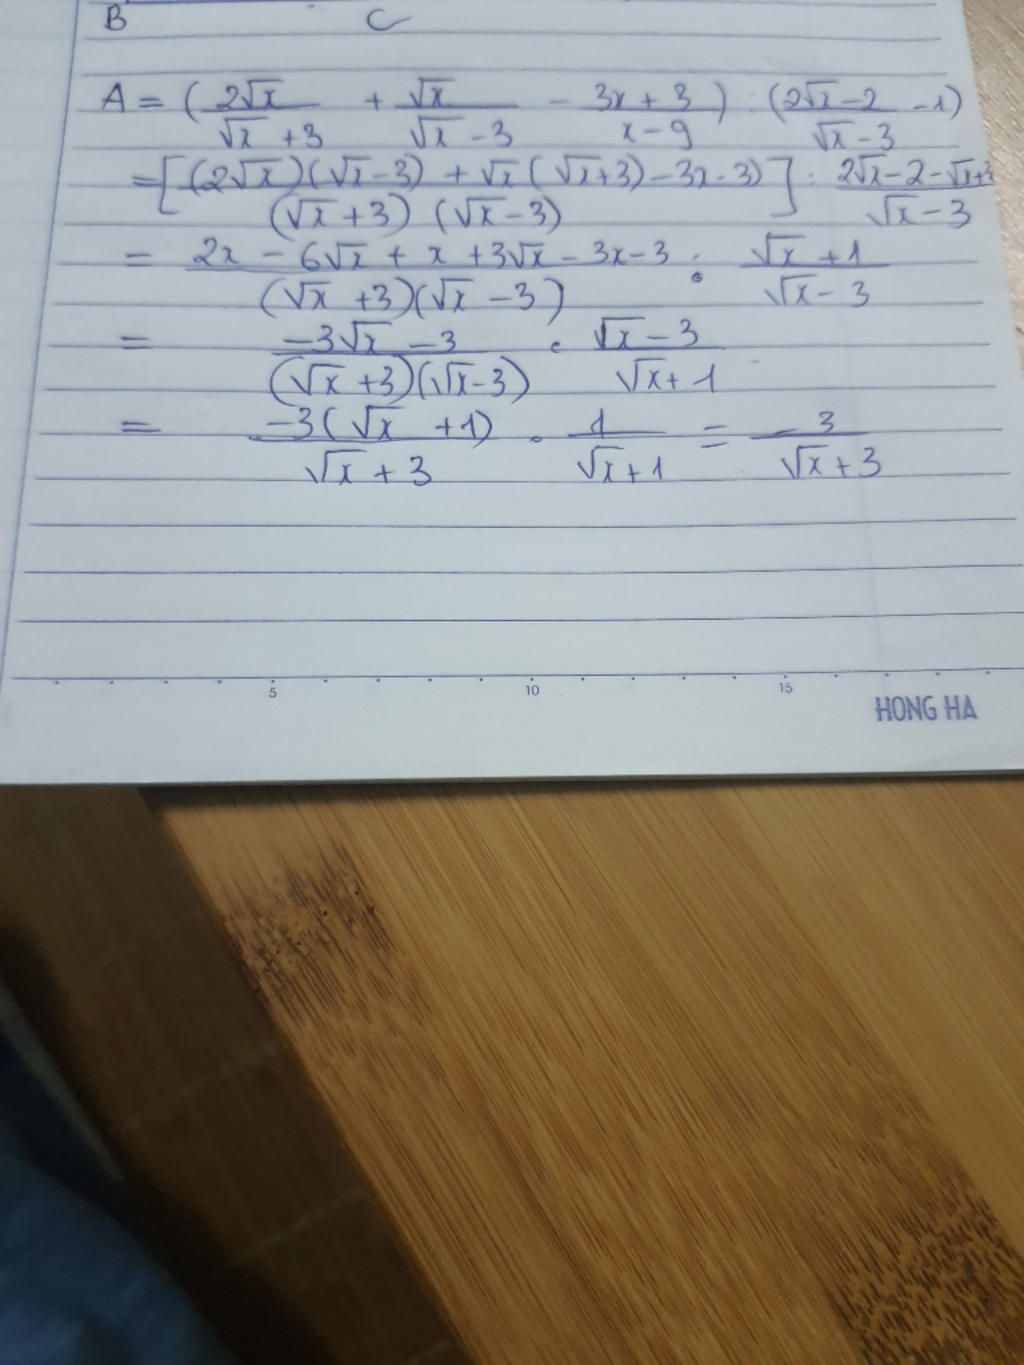 B C
A = (2√x / √x + 3 + √x / √x - 3 - 3x + 3 / x - 9) : (2√x - 2 / √x - 3 - 1)
= [(2√x)(√x - 3) + √x(√x + 3) - 3x - 3) / (√x + 3)(√x - 3)] : 2√x - 2 - √x + 3 / √x - 3
= 2x - 6√x + x + 3√x - 3x - 3 / (√x + 3)(√x - 3) : √x + 1 / √x - 3
= -3√x - 3 / (√x + 3)(√x - 3) . √x - 3 / √x + 1
= -3(√x + 1) / √x + 3 . 1 / √x + 1 = -3 / √x + 3
5 10 15
HONG HA